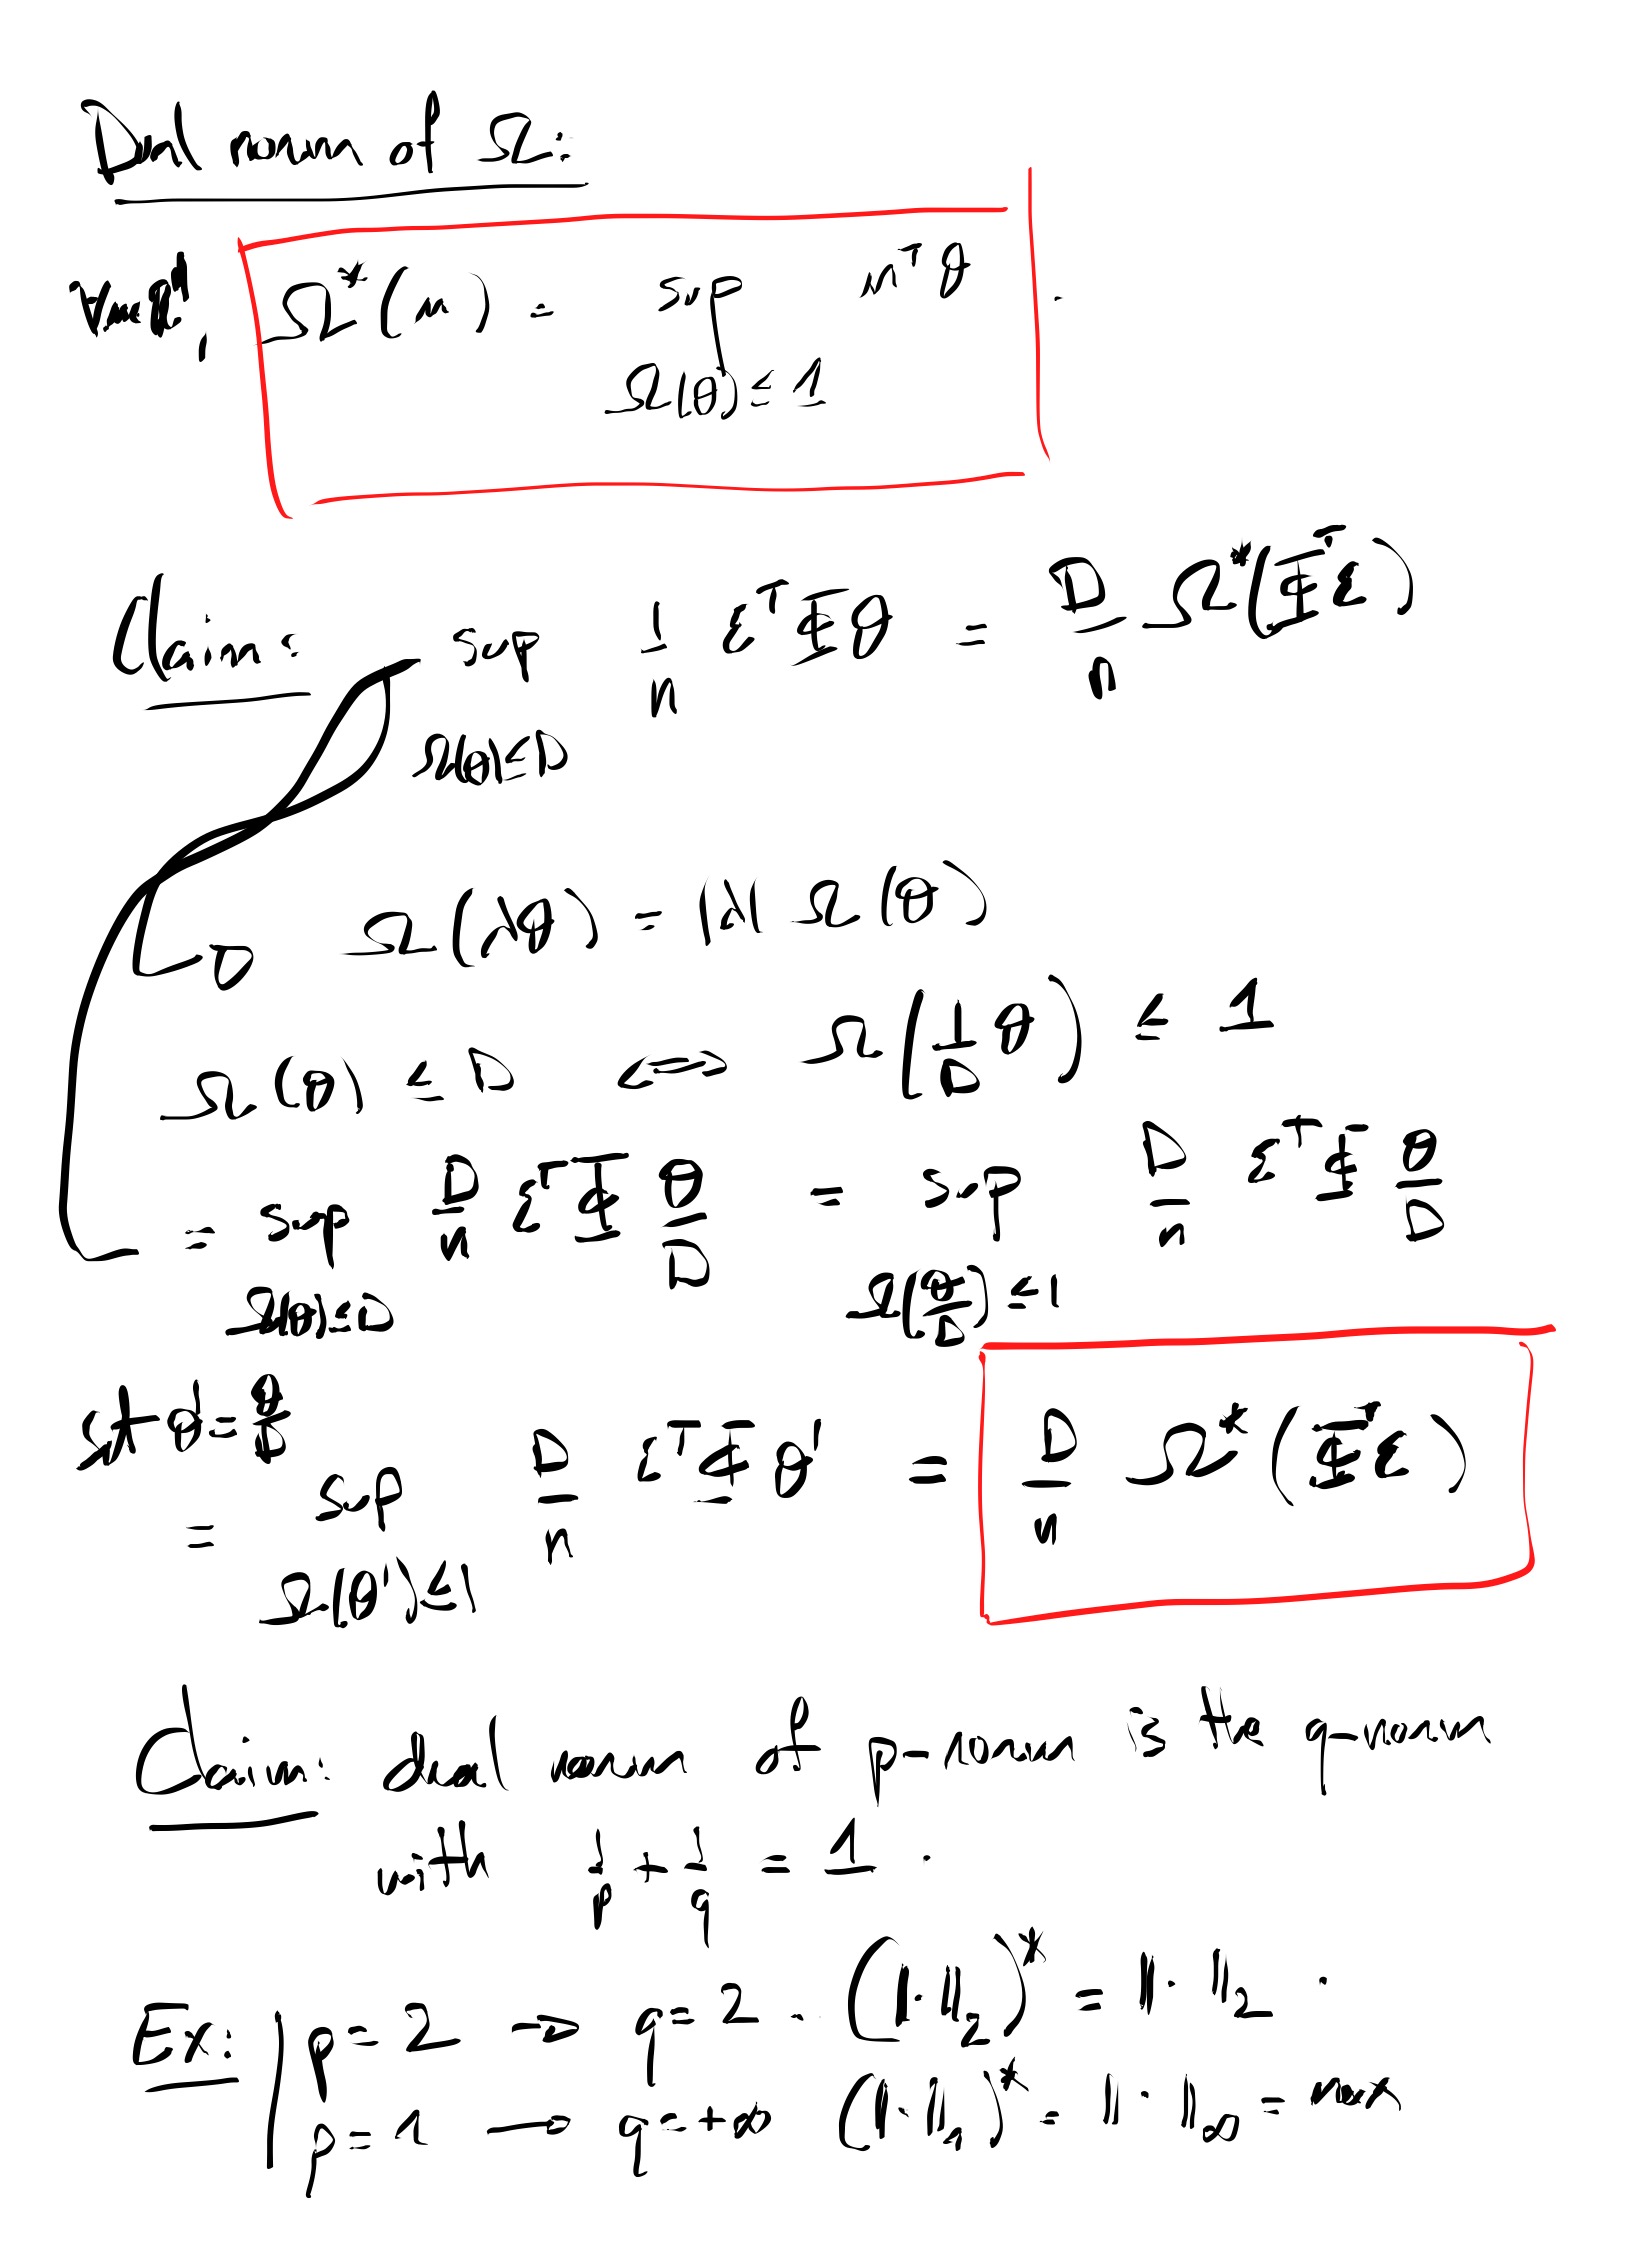 Dual norm of Ω:
∀u∈ℝᵈ, Ω*(u) = sup uᵀθ .
Ω(θ) ≤ 1
Claim: sup 1/n εᵀΦθ = D/n Ω*(Φᵀε)
Ω(θ)≤D
Ω(λθ) = |λ| Ω(θ)
Ω(θ) ≤ D ⟺ Ω(1/D θ) ≤ 1
= sup D/n εᵀΦ θ/D = sup D/n εᵀΦ θ/D
Ω(θ)≤D Ω(θ/D) ≤ 1
set θ' = θ/D
= sup D/n εᵀΦθ' = D/n Ω*(Φᵀε)
Ω(θ')≤1
Claim: dual norm of p-norm is the q-norm
with 1/p + 1/q = 1 .
Ex: p = 2 → q = 2 . (‖·‖₂)* = ‖·‖₂ .
p = 1 → q = +∞ (‖·‖₁)* = ‖·‖∞ = max